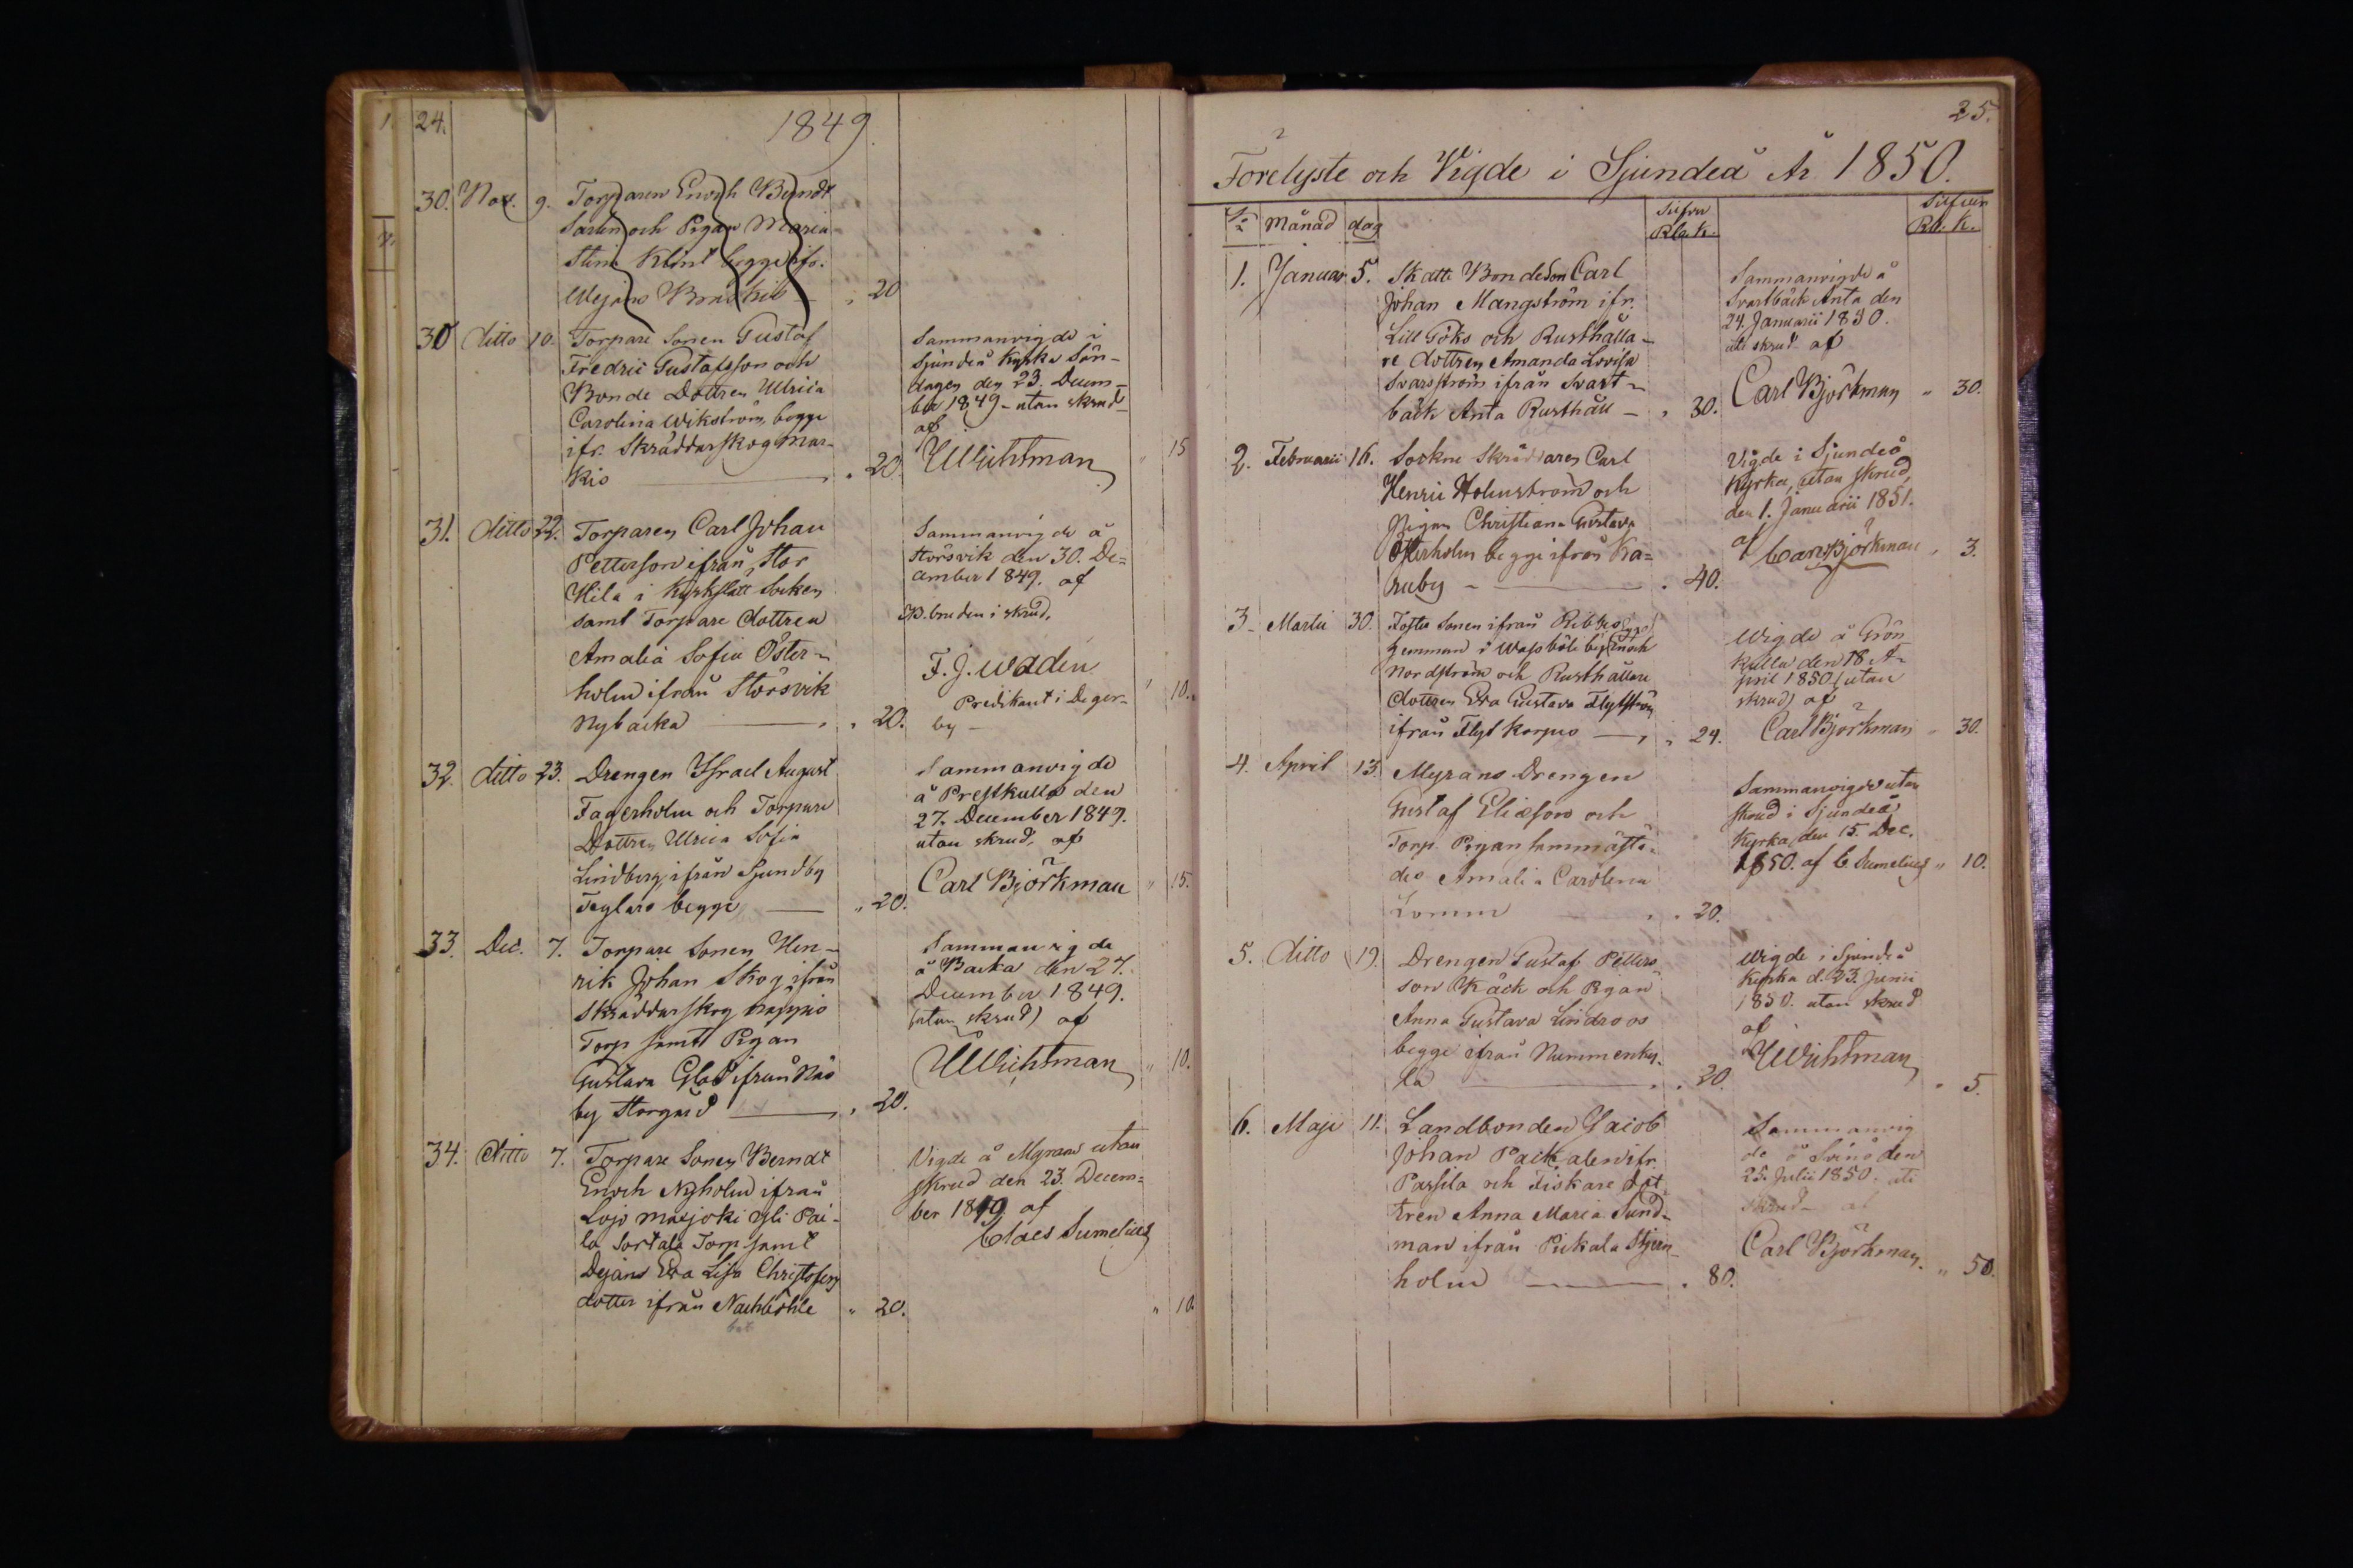 24.
1849.
30. Nov. 9. Torparen Enoch Berndt
son och Pigan Maria
Stina Klint begge ifr.
20
30 ditto 10. Torpare Sonen Gustaf
Fredric Gustafsson och
Bonde Dottren Ulrica
Carolina Wikström, begge
ifr. Skräddarskog Mar-
kis 20.
Sammanvigde i
Sjundeå Kyrka Sön-
dagen den 23. Decem-
ber 1849 - utan skrud
af
15
31. ditto 22. Torparen Carl Johan
Petterson ifrån Stor
Hila i Kyrkslätt Socken
samt Torpare dottren
Amalia Sofia Öster-
holm ifrån Störsvik
Nybacka 20.
Sammanvigde å
Störsvik den 30. De-
cember 1849. af
bruden i skrud.
F. J. Wadén
Predikant i Deger-
by - 10.
32. ditto 23. Drengen Israel August
Fagerholm och Torpare
Dottren Ulrica Sofia
Lindberg, ifrån Sjundby
Teglars begge 20.
Sammanvigde
å Prestkulla den
27. December 1849.
utan skrud, af
Carl Björkman " 15.
33. Dec. 7. Torpare Sonen Hen-
rik Johan Skog ifrån
Skräddarskog
Torp samt Pigan
Gustava Glad ifrån Näs
by Storgård 20.
Sammanvigde
å Backa den 27.
December 1849.
(utan skrud) af
" 10.
34. Ditto 7. Torpare Sonen Berndt
Enoch Nyholm ifrån
Lojo
la Torp samt
Dejan Eva Lisa Christofers
dotter ifrån " 20.
Vigde å Myrans utan
skrud den 23. Decem-
ber 1849 af
Claes Sumelius
" 10.
25.
Förelyste och Vigde i Sjundeå År 1850.
No Månad dag Silfver Rb. K. Silfver Rb. K.
1. Januar. 5. Skatte Bonde Son Carl
Johan Mangström ifr.
Lill Göks och Rusthålla-
re dottren Amanda Lovisa
ifrån Svart-
bäck Anta Rusthåll - " 30.
Sammanvigde å
Svartbäck Anta den
24. Januarii 1850.
uti skrud af
Carl Björkman " 30.
2. Februarii 16. Sockne Skräddaren Carl
Henric Holmström och
Pigan Christiana Gustava
Österholm begge ifrån Ka-
ruby 40.
Vigde i Sjundeå
Kyrka, utan skrud,
den 1. Januarii 1851.
af Carl Björkman " 3.
3. Martii 30. Foster Sonen ifrån
hemman i by Enoch
Nordström och Rusthållare
dottren Eva Gustava Flytström
ifrån Flyt Korpus " 24.
Wigde å Grön
kulla den 18 A-
pril 1850 (utan
skrud) af
Carl Björkman " 30.
4. April 13. Myrans Drengen
Gustaf Eliæson och
Torp Pigan
des Amalia Carolina
Lomm 20.
Sammanvigde utan
skrud i Sjundeå
Kyrka, den 15. Dec.
1850. af C Sumelius " 10.
5. ditto 19. Drengen Gustaf Petters
son Käck och Pigan
Anna Gustava Lindroos
begge ifrån Nummenky-
la 20.
Wigde i Sjundeå
Kyrka d. 23. Junii
1850. utan skrud
af
" 5.
6. Maji 11. Landbonden Jacob
Johan Packalen ifr.
Passila och Fiskare dot
tren Anna Maria Sund-
man ifrån Pickala Stjern
holm 80.
Sammanvig
de å Svinö den
25. Julii 1850. uti
skrud af
Carl Björkman. " 50.